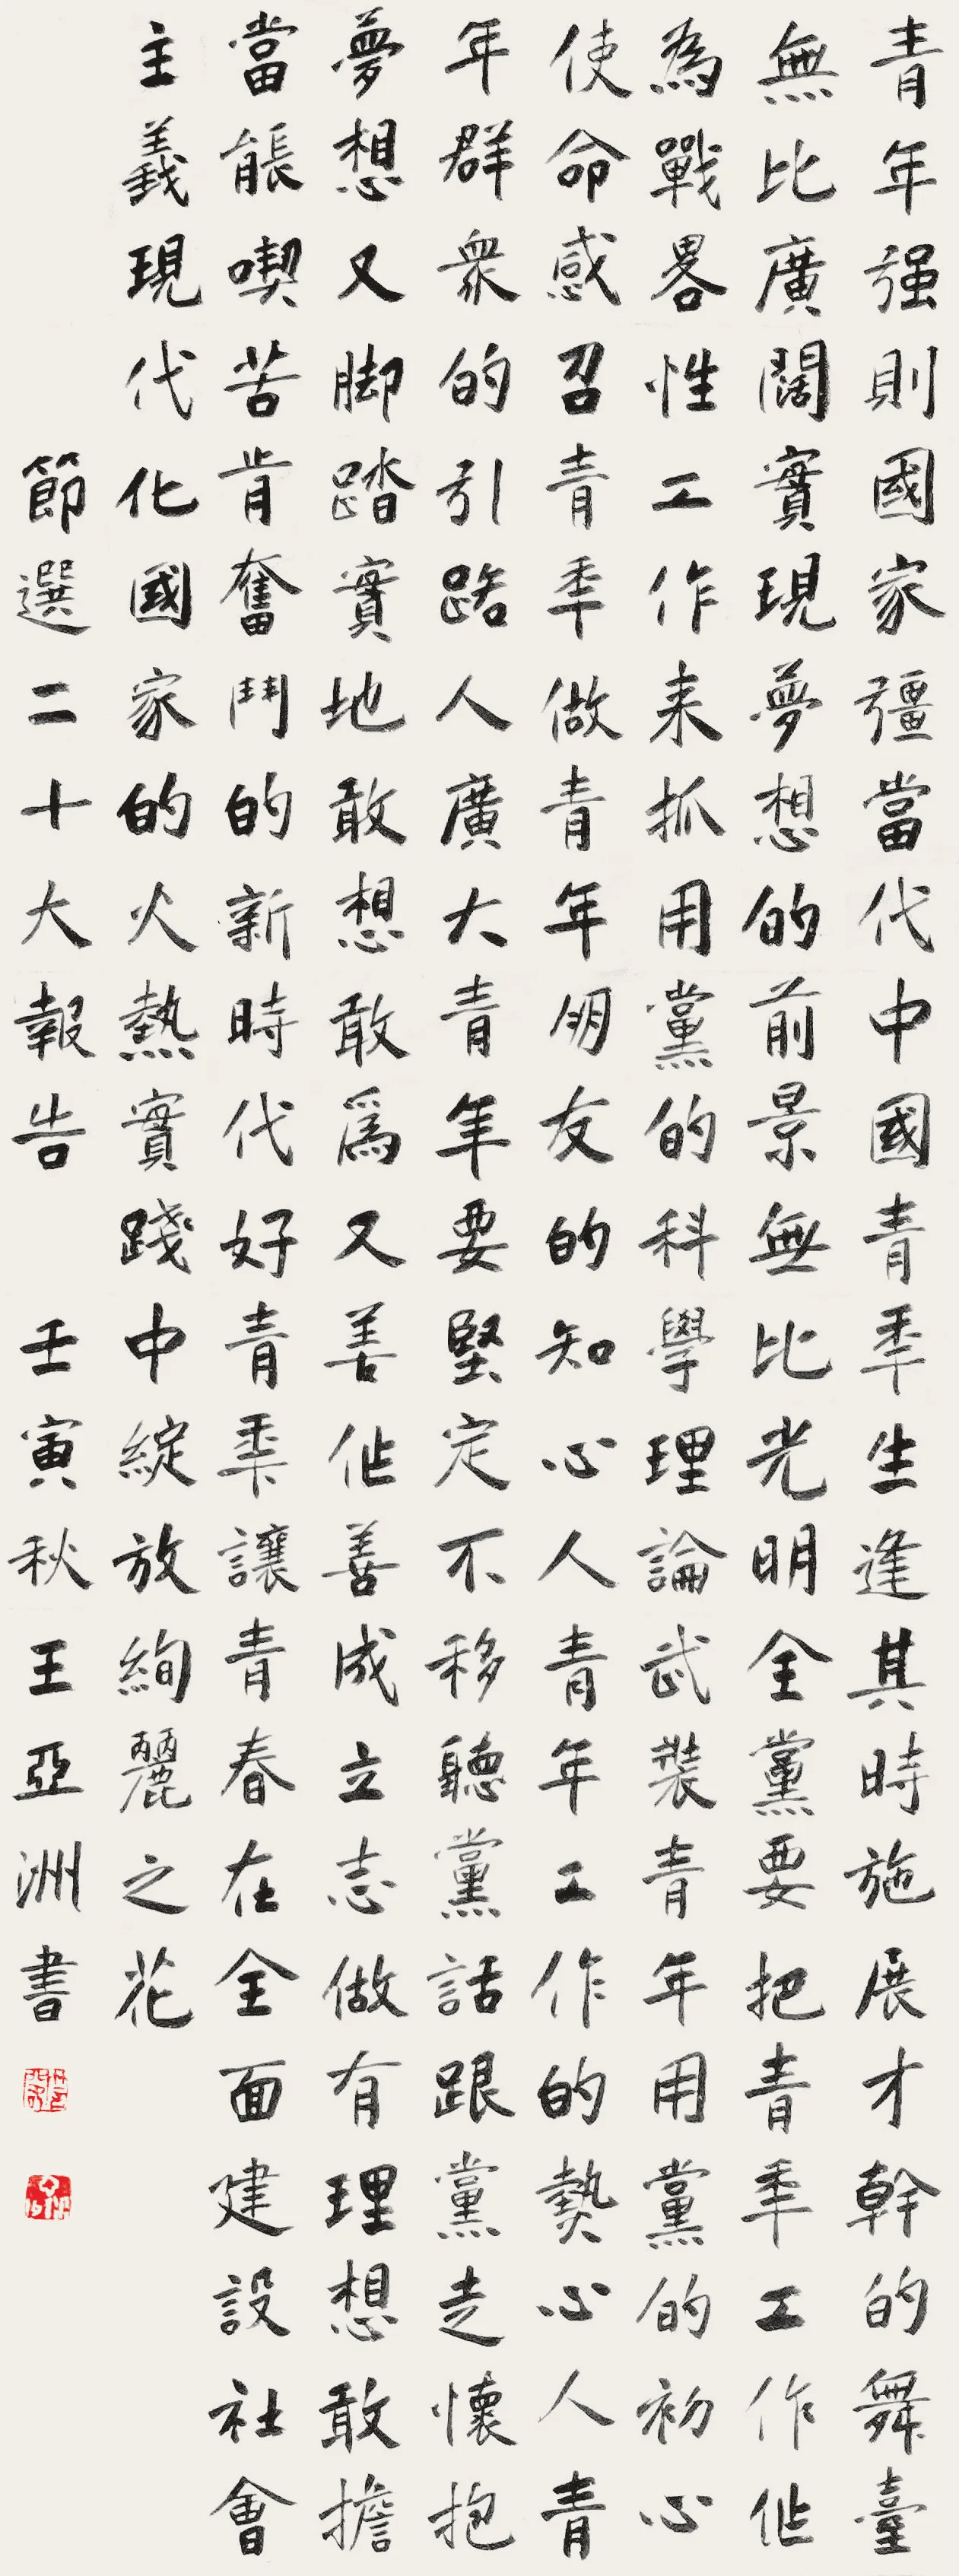 青年强則國家彊當代中國青秊生逢其時施展才幹的舞臺
無比廣闊實現夢想的前景無比光明全黨要把青秊工作作
為戰畧性工作来抓用黨的科學理論武裝青年用黨的初心
使命感召青秊做青年朋友的知心人青年工作的熱心人青
年群衆的引路人廣大青年要堅定不移聽黨話跟黨走懷抱
夢想又脚踏實地敢想敢爲又善作善成立志做有理想敢擔
當能喫苦肯奮鬥的新時代好青秊讓青春在全面建設社會
主義現代化國家的火熱實踐中綻放絢麗之花
節選二十大報告 壬寅秋王亞洲書